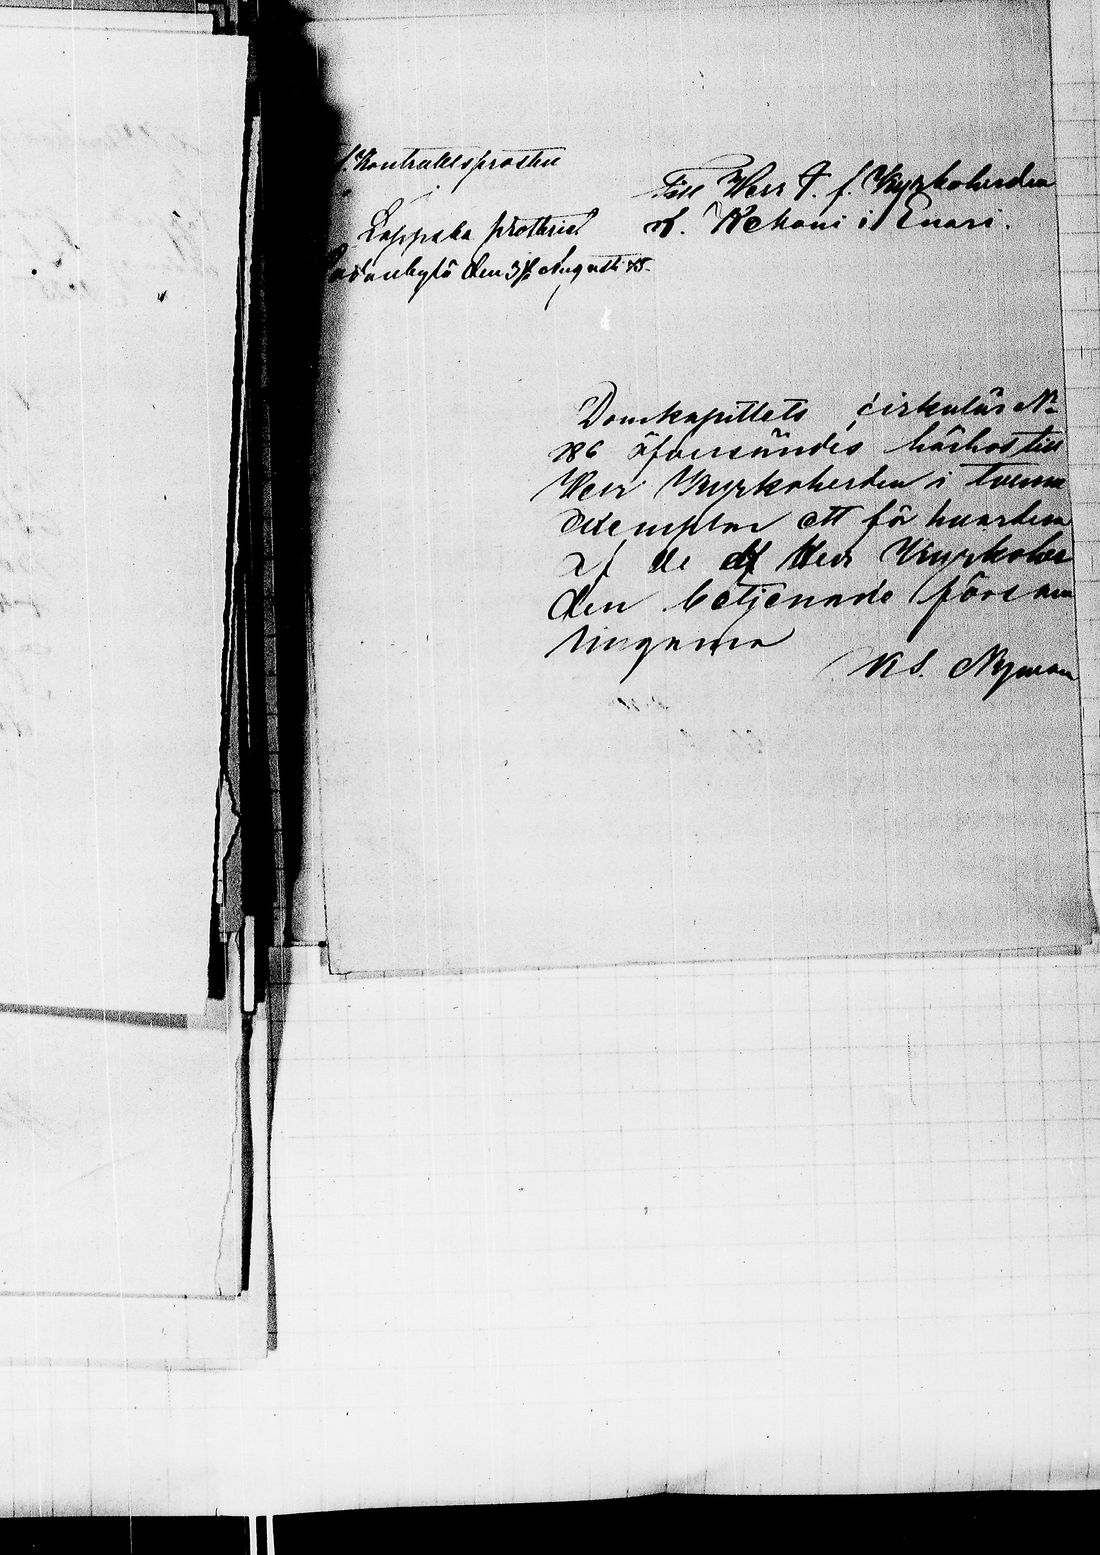 f. Kontraktsprosten
i
Lappska prosteriet
Sodankylä den 31 Augusti 78.
Till Herr T. f. Kyrkoherden
A. Kekoni i Enari.
Domkapitlets cirkulär No
186 öfversändes härhos till
Herr Kyrkoherden i tvenne
exemplar ett för hvardera
af de af Herr Kyrkoher
den betjenade försam
lingarna
K S. Nyman